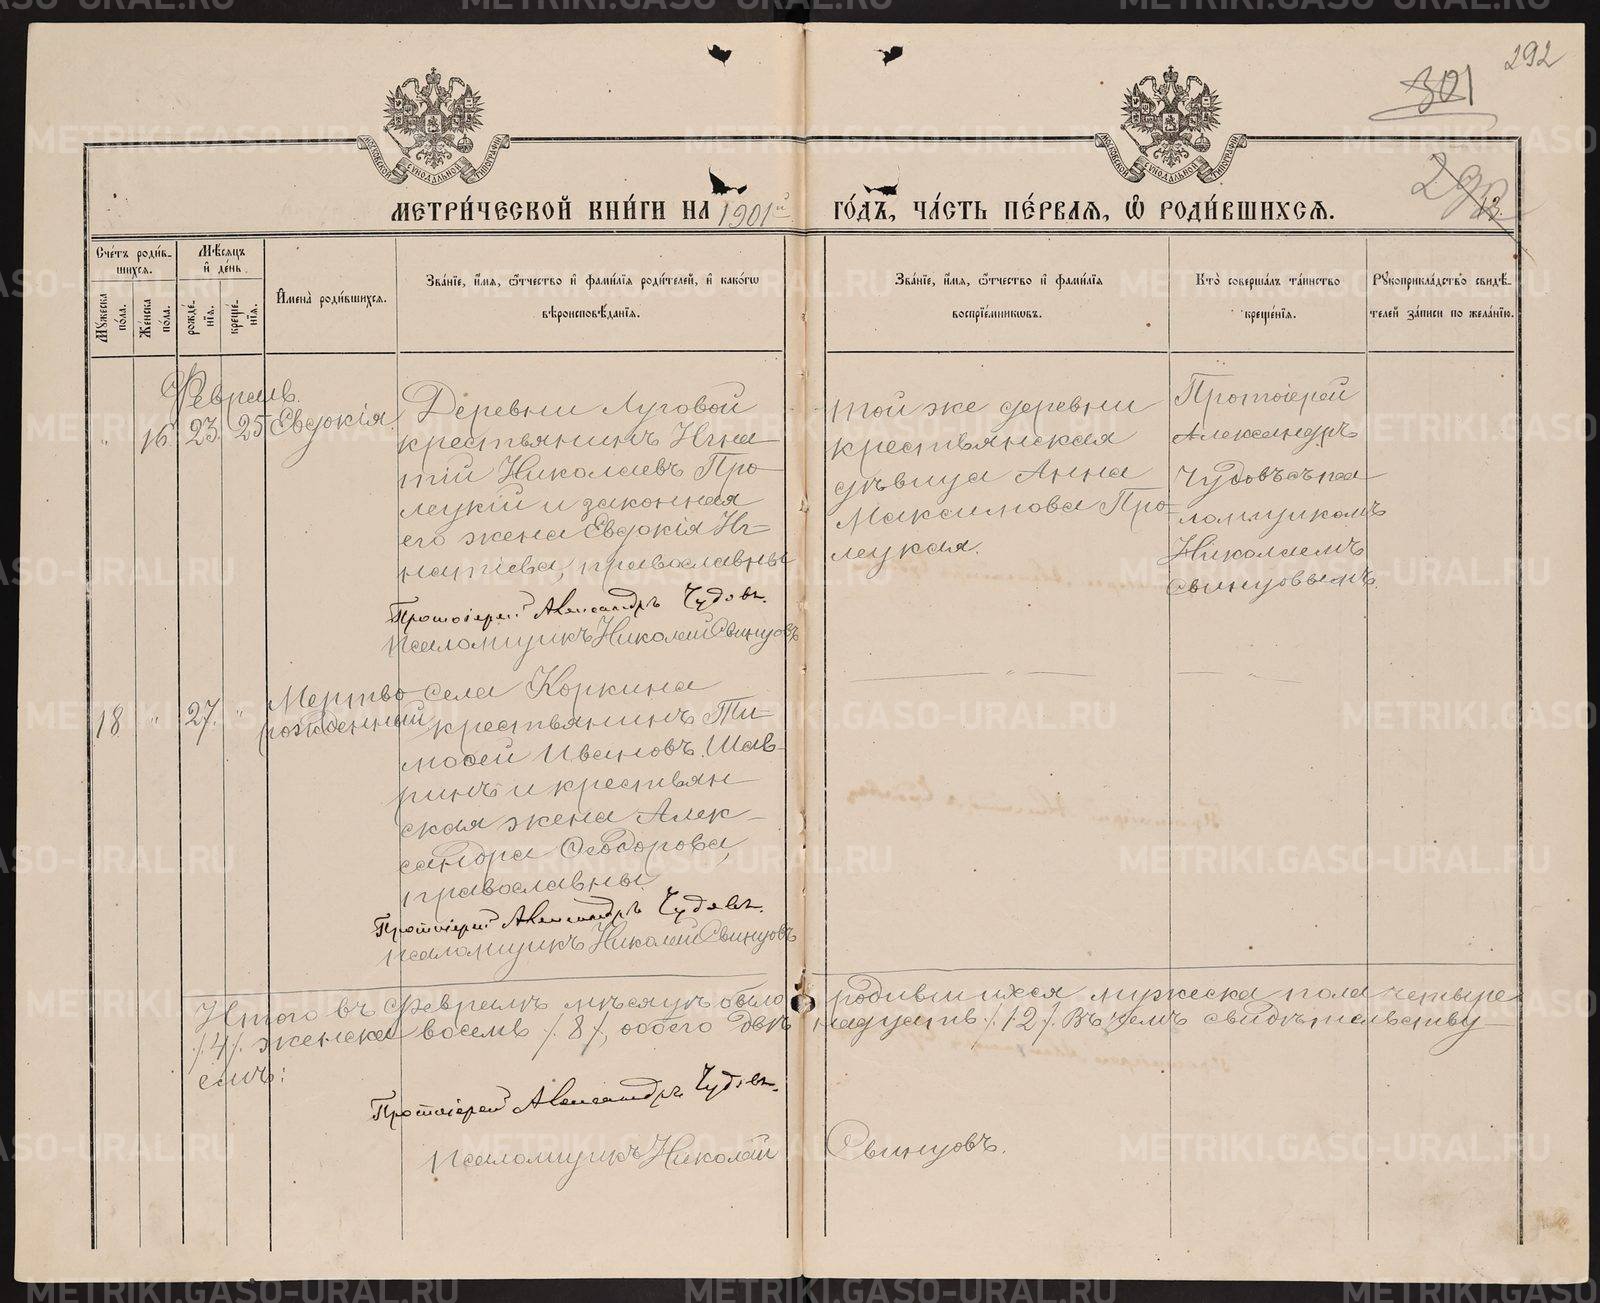 292
301
292
13.
МОСКОВСКОЙ СѴНОДАЛЬНОЙ ТИПОГРАФІИ
МОСКОВСКОЙ СѴНОДАЛЬНОЙ ТИПОГРАФІИ
МЕТРИ́ЧЕСКОЙ КНИ́ГИ НА 1901й ГО́ДЪ, ЧА́СТЬ ПЕ́РВАЯ, Ѡ҆ РОДИ́ВШИХСЯ.
Сче́тъ роди́в-
шихся.
Мꙋ́жеска по́ла.
Же́нска по́ла.
Мѣ́сяцъ
и҆ де́нь.
рожде́-
нїя.
креще́-
нїя.
И҆мена̀ роди́вшихся.
Зва́нїе, и҆́мя, ѻ҆́тчество и҆ фами́лїя роди́телей, и҆ како́гѡ
вѣроисповѣ́данїя.
Зва́нїе, и҆́мя, ѻ҆́тчество и҆ фами́лїя
воспрїе́мникѡвъ.
Кто̀ соверша́лъ та́инство
креще́нїя.
Рꙋкоприкла́дство свидѣ́-
телей за́писи по жела́нїю.
Февраль.
" 16. 23. 25 Евдокія.
Деревни Луговой
крестьянинъ Игна-
тій Николаевъ Про-
лецкій и законная
его жена Евдокія Иг-
натіева, православны
Протоіерей Александръ Чудовъ.
Псаломщикъ Николай Свинцовъ
той же деревни
крестьянская
дѣвица Анна
Максимова Про-
лецкая.
Протоіерей
Александръ
Чудовъ съ пса
ломщикомъ
Николаемъ
Свинцовымъ.
18 " 27. " Мертво
рожденный
Села Коркина
крестьянинъ Ти-
моѳей Ивановъ Шав-
ринъ и крестьян
ская жена Алек-
сандра Ѳеодорова,
православны
Протоіерей Александръ Чудовъ.
Псаломщикъ Николай Свинцовъ
Итого въ Февралѣ мѣсяцѣ было родившихся мужеска пола четыре
/4/ женска восемь /8/, обоего двѣ надцать /12/. Въ чемъ свидѣтельству-
емъ:
Протоіерей Александръ Чудовъ.
Псаломщикъ Николай Свинцовъ.
METRIKI.GASO-URAL.RU